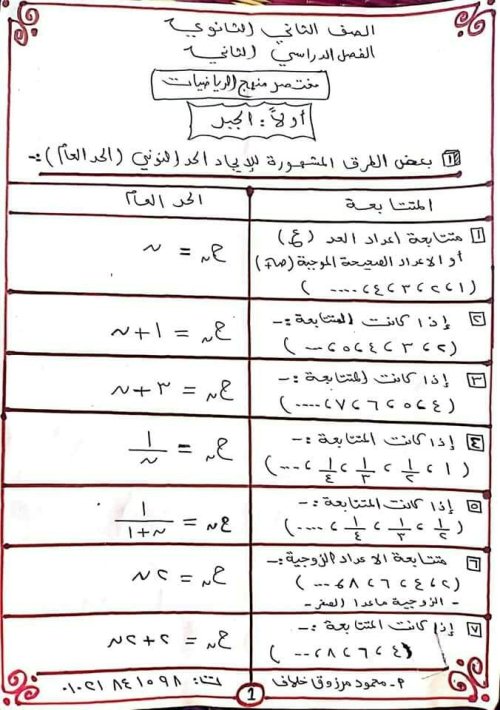 الصف الثاني الثانوي
الفصل الدراسي الثاني
مختصر منهج الرياضيات
أولاً: الجبر
١ بعض الطرق المشهورة لإيجاد الحد النوني (الحد العام) :-
المتتابعة
الحد العام
١ متتابعة أعداد العد (ع)
أو الاعداد الصحيحة الموجبة (ص+)
(١ ، ٢ ، ٣ ، ٤ ، ....)
ح ن = ن
٢ إذا كانت المتتابعة :-
(٢ ، ٣ ، ٤ ، ٥ ، ...)
ح ن = ١ + ن
٣ إذا كانت المتتابعة :-
(٤ ، ٥ ، ٦ ، ٧ ، ....)
ح ن = ٣ + ن
٤ إذا كانت المتتابعة :-
(١ ، ١/٢ ، ١/٣ ، ١/٤ ، ...)
ح ن = ١/ن
٥ إذا كانت المتتابعة :-
(١/٢ ، ١/٣ ، ١/٤ ، ....)
ح ن = ١/(ن+١)
٦ متتابعة الاعداد الزوجية :-
(٢ ، ٤ ، ٦ ، ٨ ، ...)
- الزوجية ماعدا الصفر -
ح ن = ٢ن
٧ إذا كانت المتتابعة :-
(٤ ، ٦ ، ٨ ، ...)
ح ن = ٢ + ٢ن
م- محمود مرزوق خلاف
1
ت: ٠١٠٢١٨٤١٥٩٨